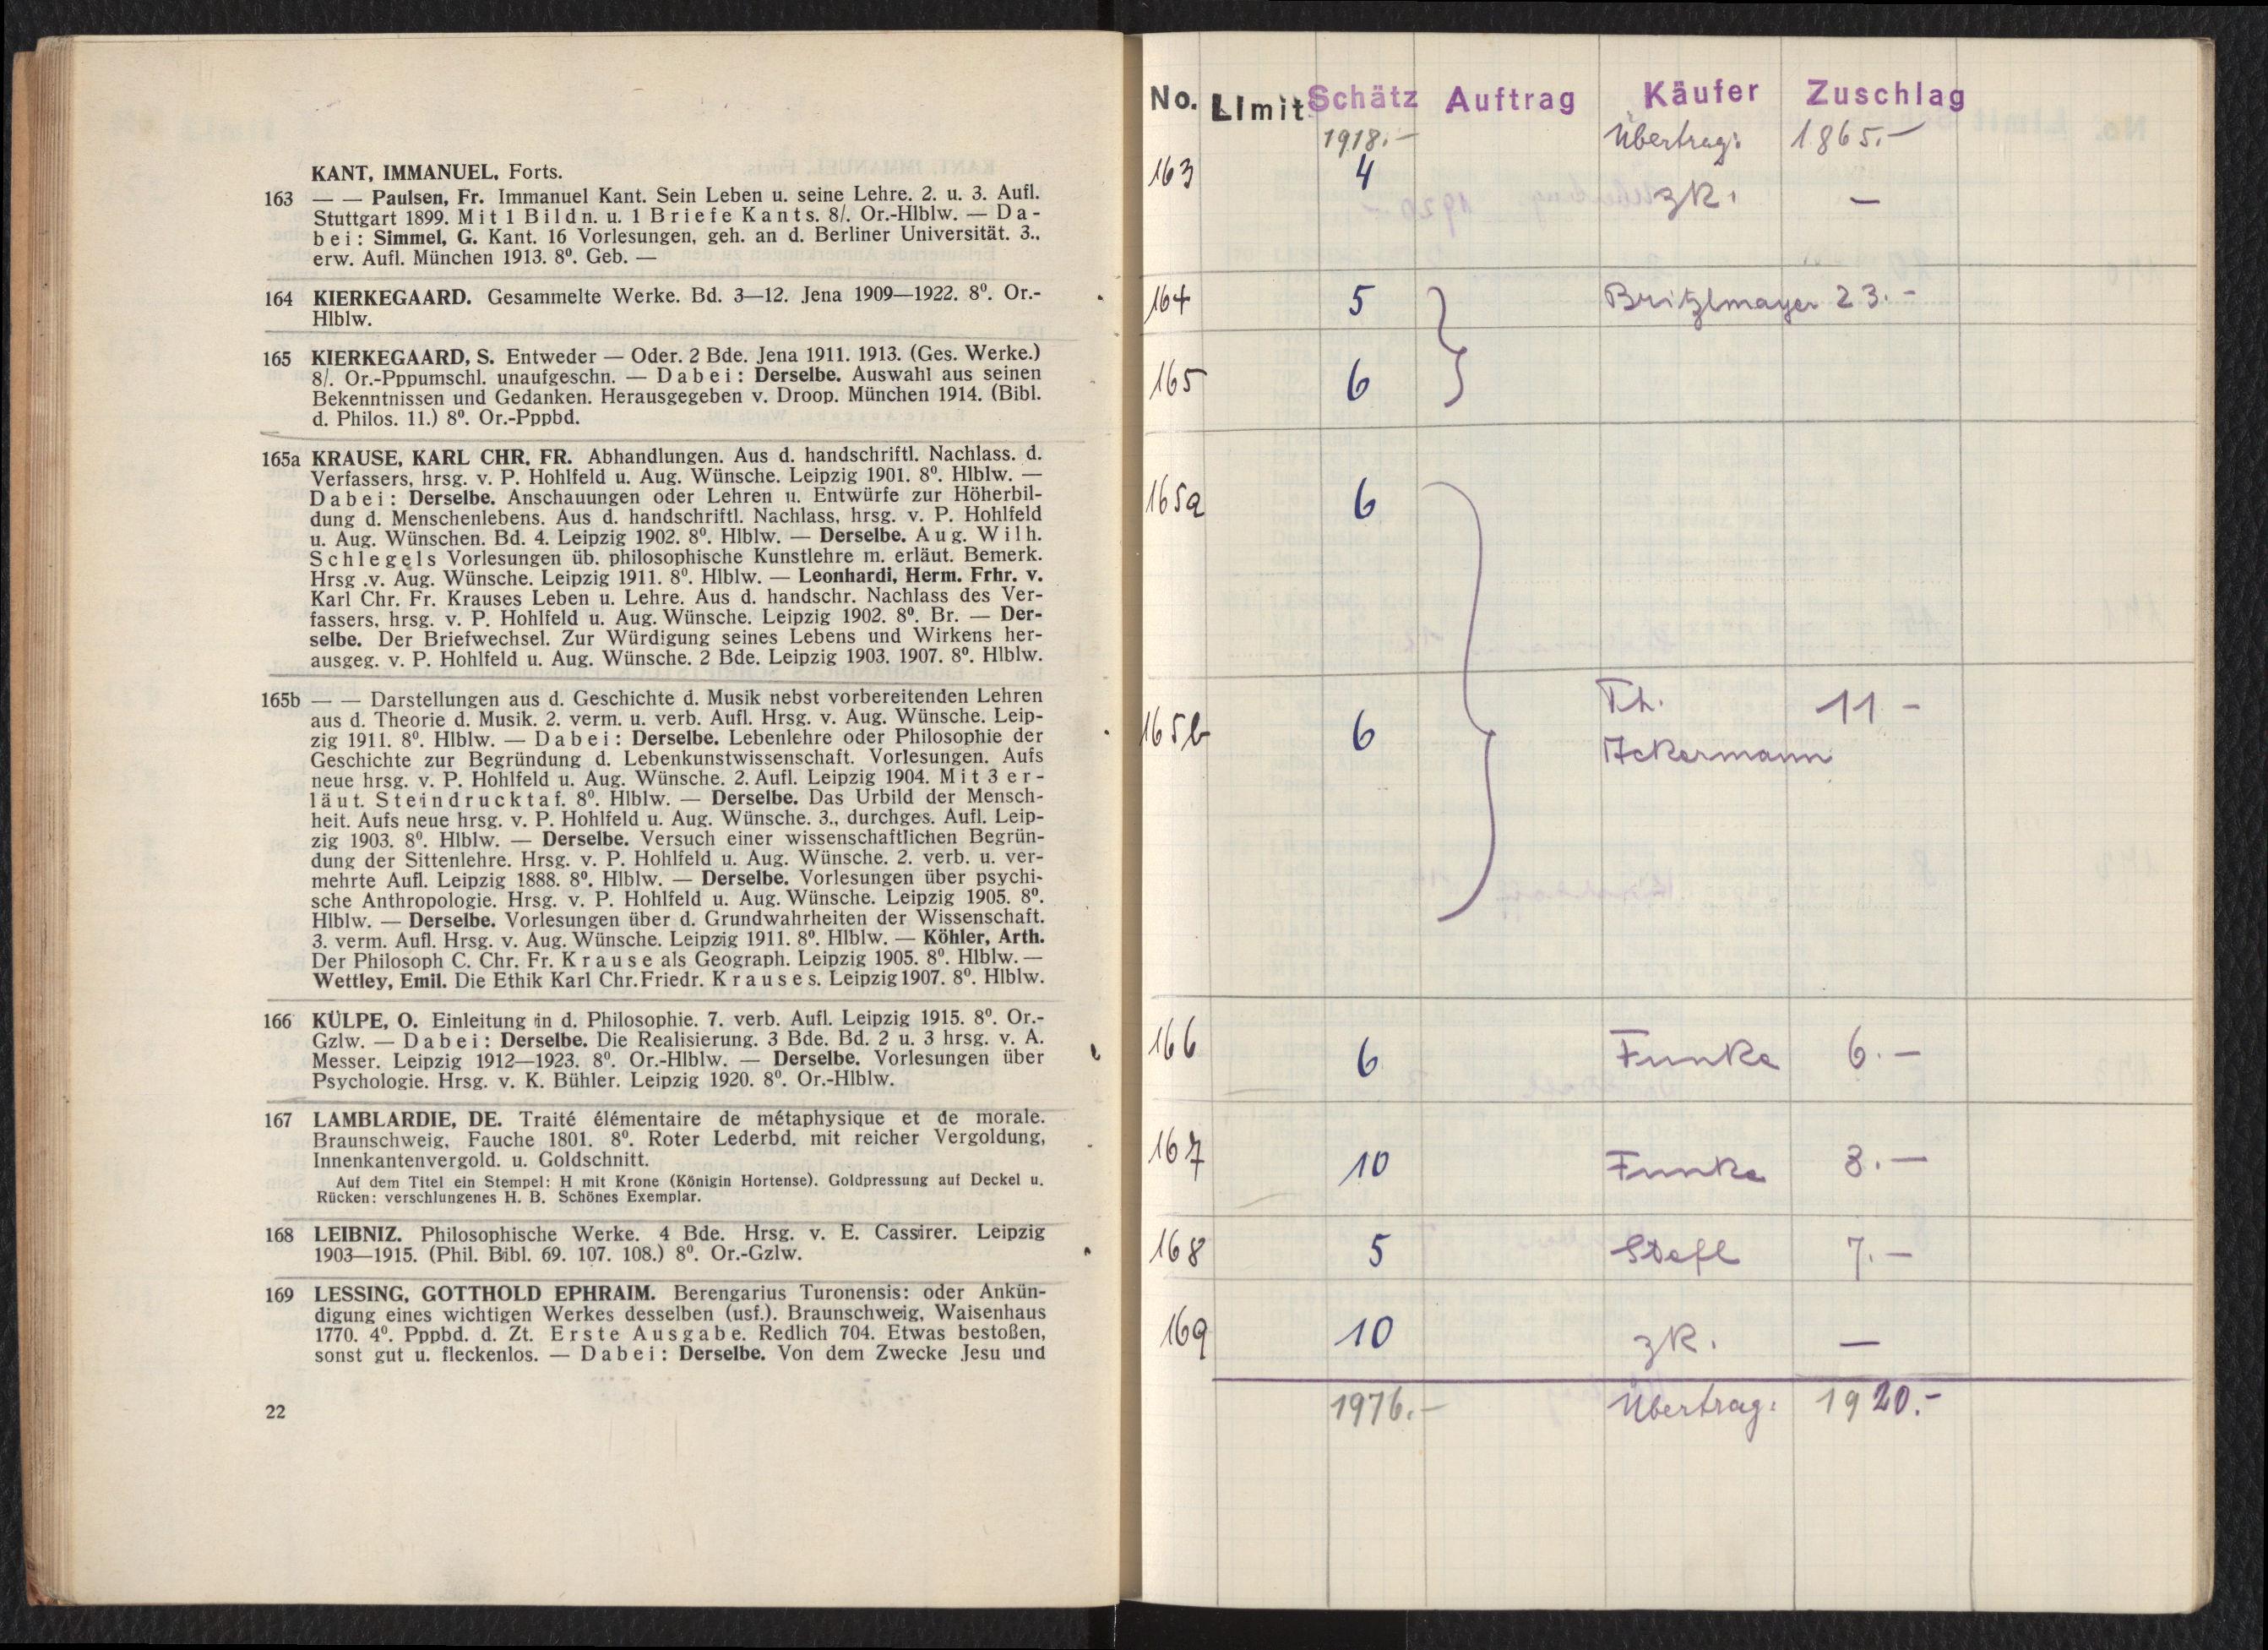 KANT, IMMANUEL, Forts.
163 — — Paulsen, Fr. Immanuel Kant. Sein Leben u. seine Lehre. 2. u. 3. Aufl.
Stuttgart 1899. Mit 1 Bildn. u. 1 Briefe Kants. 8/. Or.-Hlblw. — Da-
bei: Simmel, G. Kant. 16 Vorlesungen, geh. an d. Berliner Universität. 3.,
erw. Aufl. München 1913. 8⁰. Geb. —
164 KIERKEGAARD. Gesammelte Werke. Bd. 3—12. Jena 1909—1922. 8⁰. Or.-
Hlblw.
165 KIERKEGAARD, S. Entweder — Oder. 2 Bde. Jena 1911. 1913. (Ges. Werke.)
8/. Or.-Pppumschl. unaufgeschn. — Dabei: Derselbe. Auswahl aus seinen
Bekenntnissen und Gedanken. Herausgegeben v. Droop. München 1914. (Bibl.
d. Philos. 11.) 8⁰. Or.-Pppbd.
165a KRAUSE, KARL CHR. FR. Abhandlungen. Aus d. handschriftl. Nachlass. d.
Verfassers, hrsg. v. P. Hohlfeld u. Aug. Wünsche. Leipzig 1901. 8⁰. Hlblw. —
Dabei: Derselbe. Anschauungen oder Lehren u. Entwürfe zur Höherbil-
dung d. Menschenlebens. Aus d. handschriftl. Nachlass, hrsg. v. P. Hohlfeld
u. Aug. Wünschen. Bd. 4. Leipzig 1902. 8⁰. Hlblw. — Derselbe. Aug. Wilh.
Schlegels Vorlesungen üb. philosophische Kunstlehre m. erläut. Bemerk.
Hrsg .v. Aug. Wünsche. Leipzig 1911. 8⁰. Hlblw. — Leonhardi, Herm. Frhr. v.
Karl Chr. Fr. Krauses Leben u. Lehre. Aus d. handschr. Nachlass des Ver-
fassers, hrsg. v. P. Hohlfeld u. Aug. Wünsche. Leipzig 1902. 8⁰. Br. — Der-
selbe. Der Briefwechsel. Zur Würdigung seines Lebens und Wirkens her-
ausgeg. v. P. Hohlfeld u. Aug. Wünsche. 2 Bde. Leipzig 1903. 1907. 8⁰. Hlblw.
165b — — Darstellungen aus d. Geschichte d. Musik nebst vorbereitenden Lehren
aus d. Theorie d. Musik. 2. verm. u. verb. Aufl. Hrsg. v. Aug. Wünsche. Leip-
zig 1911. 8⁰. Hlblw. — Dabei: Derselbe. Lebenlehre oder Philosophie der
Geschichte zur Begründung d. Lebenkunstwissenschaft. Vorlesungen. Aufs
neue hrsg. v. P. Hohlfeld u. Aug. Wünsche. 2. Aufl. Leipzig 1904. Mit 3 er-
läut. Steindrucktaf. 8⁰. Hlblw. — Derselbe. Das Urbild der Mensch-
heit. Aufs neue hrsg. v. P. Hohlfeld u. Aug. Wünsche. 3., durchges. Aufl. Leip-
zig 1903. 8⁰. Hlblw. — Derselbe. Versuch einer wissenschaftlichen Begrün-
dung der Sittenlehre. Hrsg. v. P. Hohlfeld u. Aug. Wünsche. 2. verb. u. ver-
mehrte Aufl. Leipzig 1888. 8⁰. Hlblw. — Derselbe. Vorlesungen über psychi-
sche Anthropologie. Hrsg. v. P. Hohlfeld u. Aug. Wünsche. Leipzig 1905. 8⁰.
Hlblw. — Derselbe. Vorlesungen über d. Grundwahrheiten der Wissenschaft.
3. verm. Aufl. Hrsg. v. Aug. Wünsche. Leipzig 1911. 8⁰. Hlblw. — Köhler, Arth.
Der Philosoph C. Chr. Fr. Krause als Geograph. Leipzig 1905. 8⁰. Hlblw. —
Wettley, Emil. Die Ethik Karl Chr. Friedr. Krauses. Leipzig 1907. 8⁰. Hlblw.
166 KÜLPE, O. Einleitung in d. Philosophie. 7. verb. Aufl. Leipzig 1915. 8⁰. Or.-
Gzlw. — Dabei: Derselbe. Die Realisierung. 3 Bde. Bd. 2 u. 3 hrsg. v. A.
Messer. Leipzig 1912—1923. 8⁰. Or.-Hlblw. — Derselbe. Vorlesungen über
Psychologie. Hrsg. v. K. Bühler. Leipzig 1920. 8⁰. Or.-Hlblw.
167 LAMBLARDIE, DE. Traité élémentaire de métaphysique et de morale.
Braunschweig, Fauche 1801. 8⁰. Roter Lederbd. mit reicher Vergoldung,
Innenkantenvergold. u. Goldschnitt.
Auf dem Titel ein Stempel: H mit Krone (Königin Hortense). Goldpressung auf Deckel u.
Rücken: verschlungenes H. B. Schönes Exemplar.
168 LEIBNIZ. Philosophische Werke. 4 Bde. Hrsg. v. E. Cassirer. Leipzig
1903—1915. (Phil. Bibl. 69. 107. 108.) 8⁰. Or.-Gzlw.
169 LESSING, GOTTHOLD EPHRAIM. Berengarius Turonensis: oder Ankün-
digung eines wichtigen Werkes desselben (usf.). Braunschweig, Waisenhaus
1770. 4⁰. Pppbd. d. Zt. Erste Ausgabe. Redlich 704. Etwas bestoßen,
sonst gut u. fleckenlos. — Dabei: Derselbe. Von dem Zwecke Jesu und
22
No. Limit Schätz Auftrag Käufer Zuschlag
1918.— Übertrag: 1865.—
163 4 zR. —
164 5 Britzlmayer 23.-
165 6
165a 6
165b 6 Th. 11 -
Ackermann
166 6 Funke 6.—
167 10 Funke 8.—
168 5 Stefl 7.—
169 10 zR. —
1976.— Übertrag: 1920.-